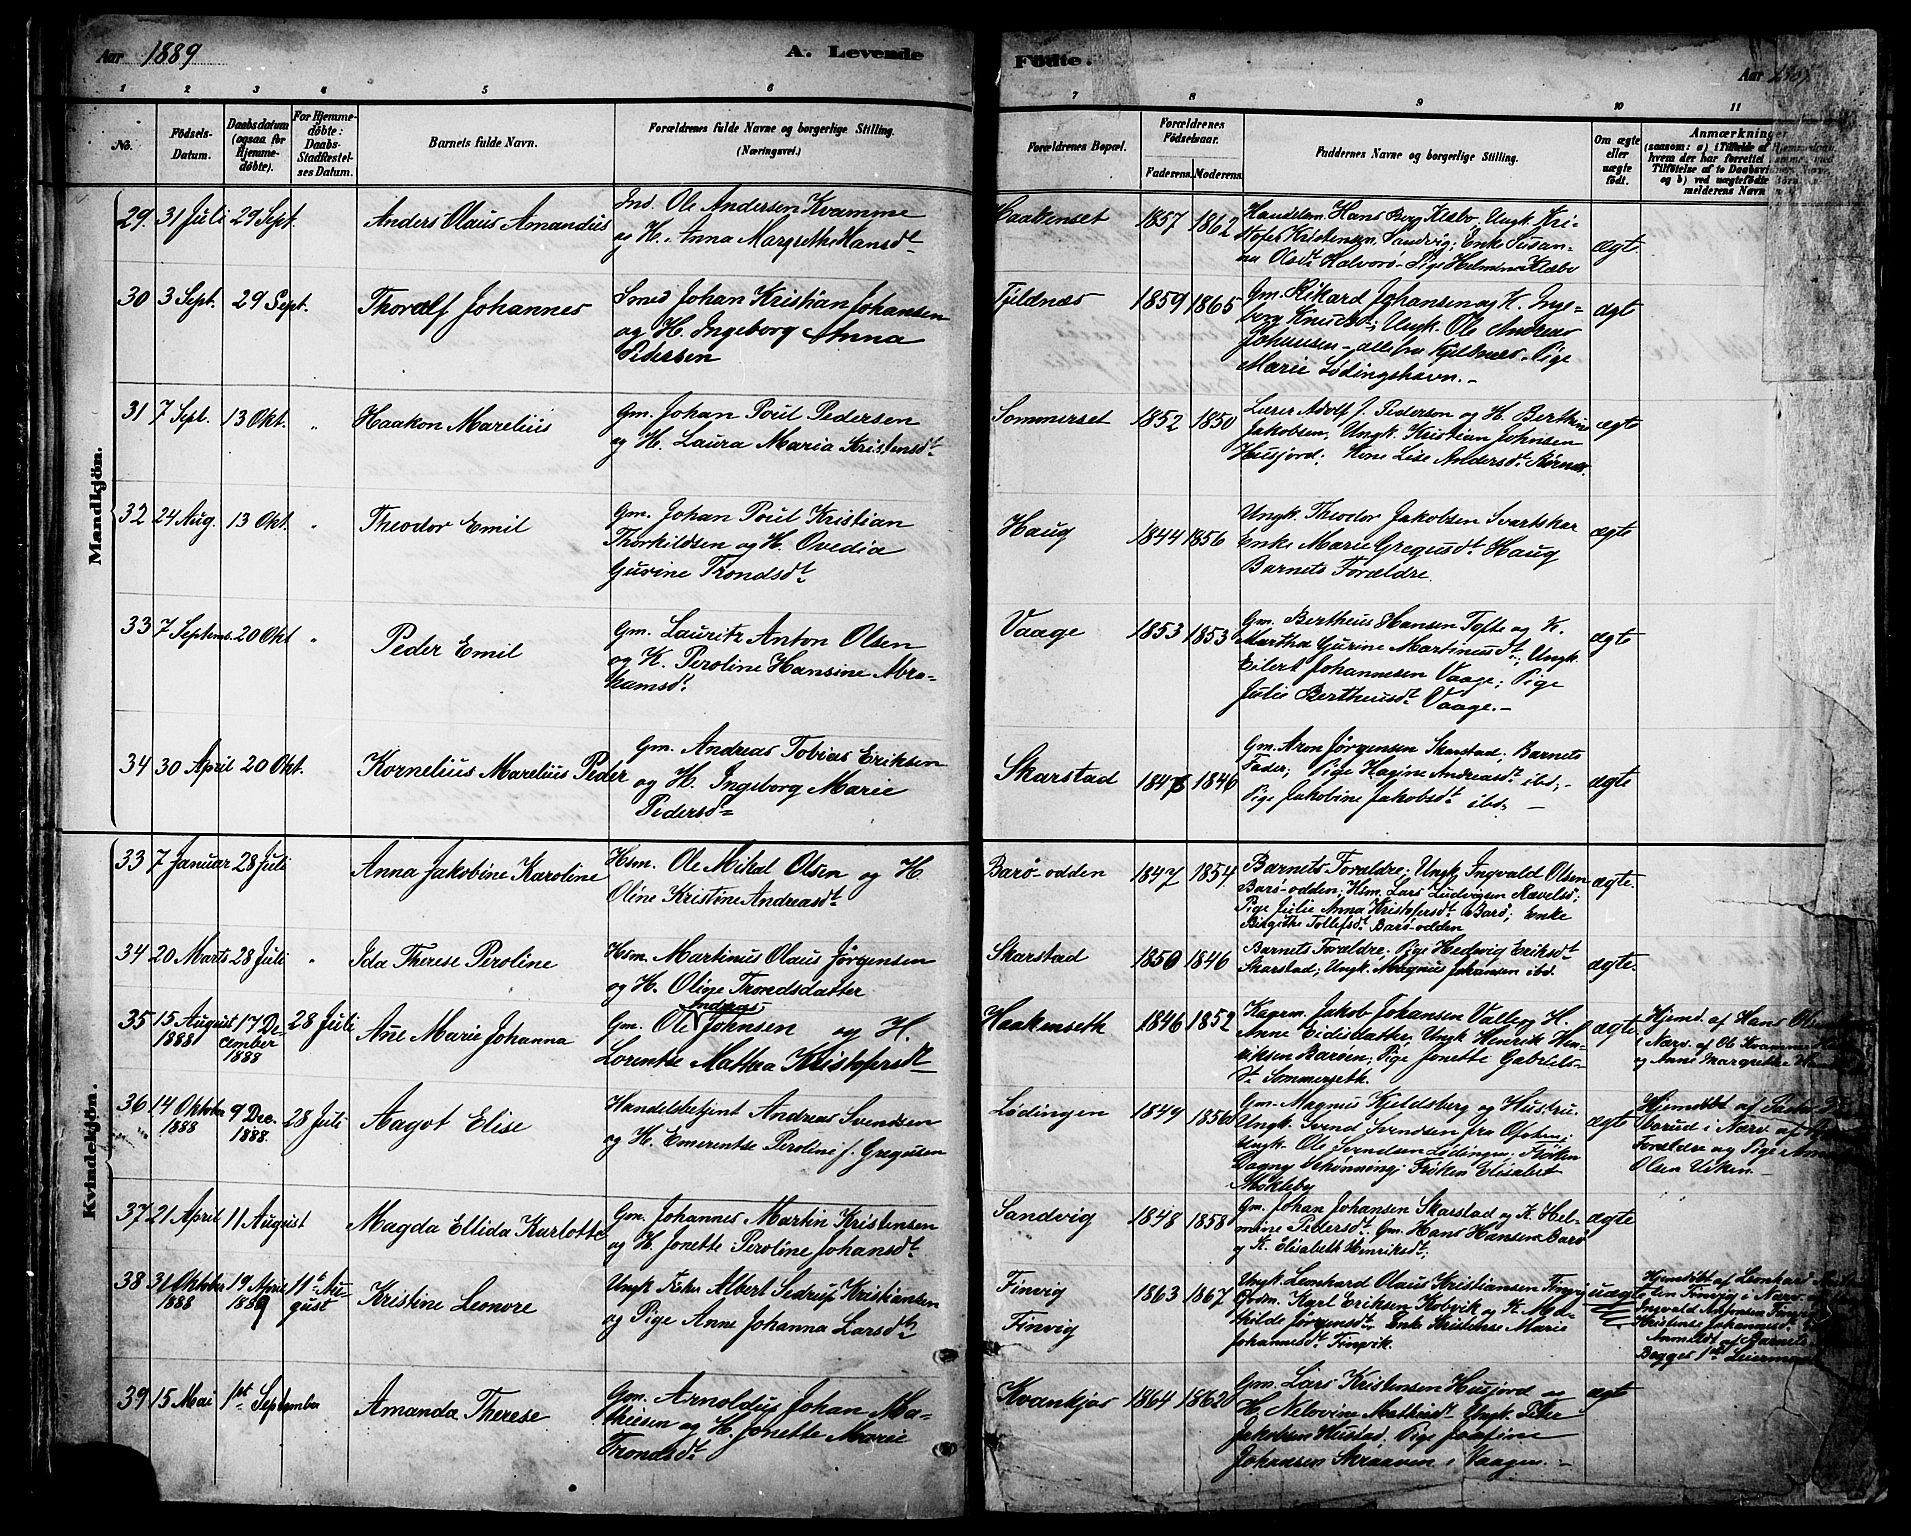 Aar 1889
A. Levende
Fødte.
Aar
1 2 3 4 5 6 7 8 9 10 11
No.
Födsels-
Datum.
Daabsdatum
(ogsaa for
Hjemme-
døbte).
For Hjemme-
døbte:
Daabs-
Stadfæstel-
ses Datum.
Barnets fulde Navn.
Forældrenes fulde Navne og borgerlige Stilling.
(Næringsvei.)
Forældrenes Bopæl.
Forældrenes
Födselsaar.
Faderens. Moderens.
Faddernes Navne og borgerlige Stilling.
Om ægte
eller
uægte
født.
Anmærkninger
Mandkjön.
29. 31 Juli 29 Sept. Anders Olaus Amandus
Ind. Ole Andersen Kvamme
og H. Anna Margrethe Hansdt
Haakenset 1857 1862
Handelsm. Hans Berg Klæbo. Ungk. Kri-
stofer Kristensen Sandvig; Enke Susan-
na Olsdt Halvorø - Pige Helmina Klæbo
ægte
30 3 Sept. 29 Sept. Thoralf Johannes
Smed Johan Kristian Johansen
og H. Ingeborg Anna
Pedersen
Fjeldnæs 1859 1865
Gm. Rikard Johansen og K. Inge-
borg Knudsdt; Ungk. Ole Andreas
Johansen - alle fra Fjeldnæs. Pige
Marie Lødingshavn. -
ægt
31 7 Sept. 13 Okt. " Haakon Marelius
Gm. Johan Poul Pedersen
og H. Laura Maria Kristensdt
Sommerset 1852 1850
Lærer Adolf J. Pedersen og H. Berthine
Jakobsen, Ungk. Kristian Johnsen
Husjord; Kone Lise Andersdt
ægte
32 24 Aug. 13 Okt. " Theodor Emil
Gm. Johan Poul Kristian
Thorkildsen og H. Ovedia
Gurine Trondsdt
Haug 1844 1856
Ungk. Theodor Jakobsen Svartskar
Enke Marie Gregusdt Haug
Barnets Forældre.
ægte
33 7 Septemb. 20 Okt " Peder Emil
Gm. Lauritz Anton Olsen
og K. Peroline Hansine Abra-
hamsdt
Vaage 1853 1853
Gm. Bertheus Hansen Tofte og K.
Martha Gurine Martinusdt; Ungk.
Eilert Johannesen Vaage; Pige
Julie Bertheusdt Vaage. -
ægte
34 30 April 20 Okt. Kornelius Marelius Peder
Gm. Andreas Tobias Eriksen
og H. Ingeborg Marie
Pedersdt
Skarstad 1846
Gm. Aron Jørgensen Skarstad; Barnets
Fader; Pige Hagine Andreasdt ibd; -
Pige Jakobine Jakobsdt ibd; -
ægte
Kvindekjön.
33 7 Januar 28 Juli Anna Jakobine Karoline
Hsm. Ole Mikal Olsen og H.
Oline Kristine Andreasdt
Barø-odden 1847 1854
Barnets Forældre; Ungk Ingvald Olsen
Barø-odden; Hsm. Lars Ludvigsen
Pige Julie Anna Kristofersdt Barø; Enke
Birgithe Tollefsdt Barø-odden
ægte.
34 20 Marts 28 Juli " Ida Therese Peroline
Hsm. Martinus Olaus Jørgensen
og H. Olige Trondsdatter
Skarstad 1850 1846
Barnets Forældre; Pige Hedwig Eriksdt
Skarstad; Ungk. Magnus Johansen ibd.
ægte.
35 15 August
1888
17 De-
cember
1888
28 Juli Ane Marie Johanna
Gm. Ole Andreas Johnsen og H.
Lorentse Mathea Kristofersdt
Haakenseth 1846 1852
Kagrm. Jakob Johansen Valle og H.
Anne Eidisdatter; Ungk Henrik Hen-
riksen Barøen; Pige Jonette Gabriels-
dt Sommerseth.
ægte
Hjemd. af Hans
i Nærv. af Ole Kvamme
og Anne Margrethe
36 14 Oktober
1888
9 Dec.
1888.
28 Juli Aagot Elise
Handelsbetjent Andreas Svendsen
og H. Emerentse Peroline f. Gregusen
Lødingen 1849 1856
Gm. Magnus Kjeldsberg og Hustru.
Ungk. Svend Svendsen fra Ofoten;
Ungk. Ole Svendsen Lødingen; Frøken
Dagny Schønning; Frøken Elisabet
Stokleby
ægte
Hjemdøbt af
i Nærv. af
Forældre og Pige
Olsen
37 21 April 11 August Magda Ellida Karlotte
Gm. Johannes Martin Kristensen
og H. Jonette Peroline Johansdt
Sandvig 1848 1858
Gm. Johan Johansen Skarstad og K. Hel-
mine Pedersdt. Gm. Hans Hansen Barø
og K. Elisabeth Henriksdt;
ægte
38 31 Oktober
1888
19 April
1889
11te Au-
gust
Kristine Leonore
Ungk Fisker Albert Sedrup Kristiansen
og Pige Anne Johanna Larsdt
Finvig
Finvig
1863 1867
Ungk. Leonhard Olaus Kristiansen Finvig
Gbdm. Karl Eriksen Kobvik og K. Mat-
hilde Jørgensdt. Enke Kristense Marie
Johannesdt Finvik.
uægte
Hjemdøbt af Leonhard
Finvig i Nærv. af
Ingvald
Kristense Johannesdt
Anmeldt af Barnets
Begges 1ste Leiermaal
39 15 Mai 1ste September Amanda Therese
Gm. Arnoldus Johan Ma-
thiesen og H. Jonette Marie
Trondsdt
Kvankjos 1864 1862
Gm. Lars Kristensen Husjord og
H. Nelovine Mathisdt Ungk. Peter
Jakobsen Hustad; Pige Josefine
Johansen Skraaven i Vaagen. -
ægt